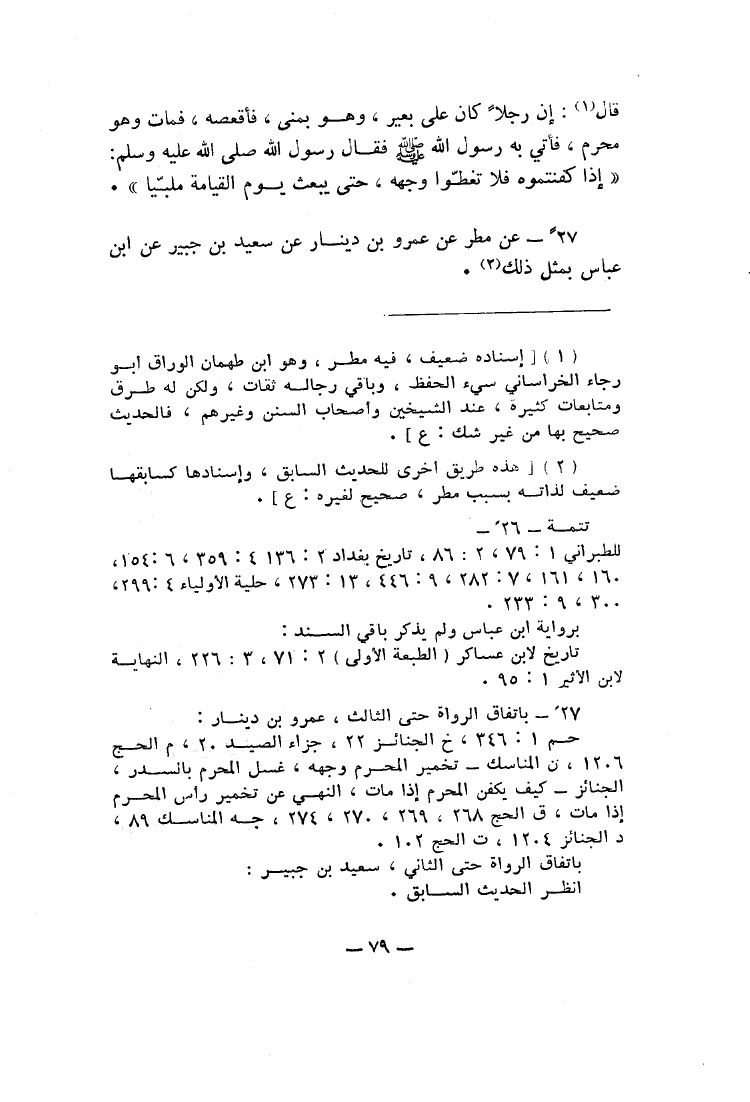 قال(١) : إن رجلاً كان على بعير ، وهـو بمنى ، فأقعصه ، فمات وهو
محرم ، فأتي به رسول الله ﷺ فقـال رسول الله صلى الله عليه وسلم:
« إذا كفنتموه فلا تغطّوا وجهه ، حتى يبعث يـوم القيامة ملبّيا » .
٢٧ً ــ عن مطر عن عمرو بن دينـار عن سعيد بن جبير عن ابن
عباس بمثل ذلك(٢) .
( ١ ) [ إسناده ضعيف ، فيه مطـر ، وهو ابن طهمان الوراق ابـو
رجاء الخراساني سيء الحفظ ، وباقي رجالـه ثقات ، ولكن له طـرق
ومتابعات كثيرة ، عند الشيخين وأصحاب السنن وغيرهم ، فالحديث
صحيح بها من غير شك : ع ] .
( ٢ ) [ هذه طريق اخرى للحديث السابق ، وإسنادها كسابقهـا
ضعيف لذاتـه بسبب مطر ، صحيح لغيره : ع ] .
تتمـة ــ ٢٦َ ــ
للطبراني ١ : ٧٩ ، ٢ : ٨٦ ، تاريخ بغداد ٢ : ١٣٦ ٤ : ٣٥٩ ، ٦ :١٥٤،
١٦٠ ، ١٦١ ، ٧ : ٢٨٢ ، ٩ : ٤٤٦ ، ١٣ : ٢٧٣ ، حلية الأولياء ٤ :٢٩٩،
٣٠٠ ، ٩ : ٢٣٣ .
برواية ابن عباس ولم يذكر باقي السـند :
تاريخ لابن عساكر ( الطبعة الأولى ) ٢ : ٧١ ، ٣ : ٢٢٦ ، النهايـة
لابن الأثير ١ : ٩٥ .
٢٧َ ــ باتفاق الرواة حتى الثالث ، عمرو بن دينـار :
حـم ١ : ٣٤٦ ، خ الجنائـز ٢٢ ، جزاء الصيـد ٢٠ ، م الحـج
١٢٠٦ ، ن المناسك ــ تخمير المحـرم وجهه ، غسل المحرم بالسـدر ،
الجنائز ــ كيف يكفن المحرم إذا مات ، النهـي عن تخمير رأس المحـرم
إذا مات ، ق الحج ٢٦٨ ، ٢٦٩ ، ٢٧٠ ، ٢٧٤ ، جـه المناسـك ٨٩ ،
د الجنائز ١٢٠٤ ، ت الحج ١٠٢ .
باتفاق الرواة حتى الثاني ، سعيد بن جبيـر :
انظـر الحديث السـابق .
ــ ٧٩ ــ